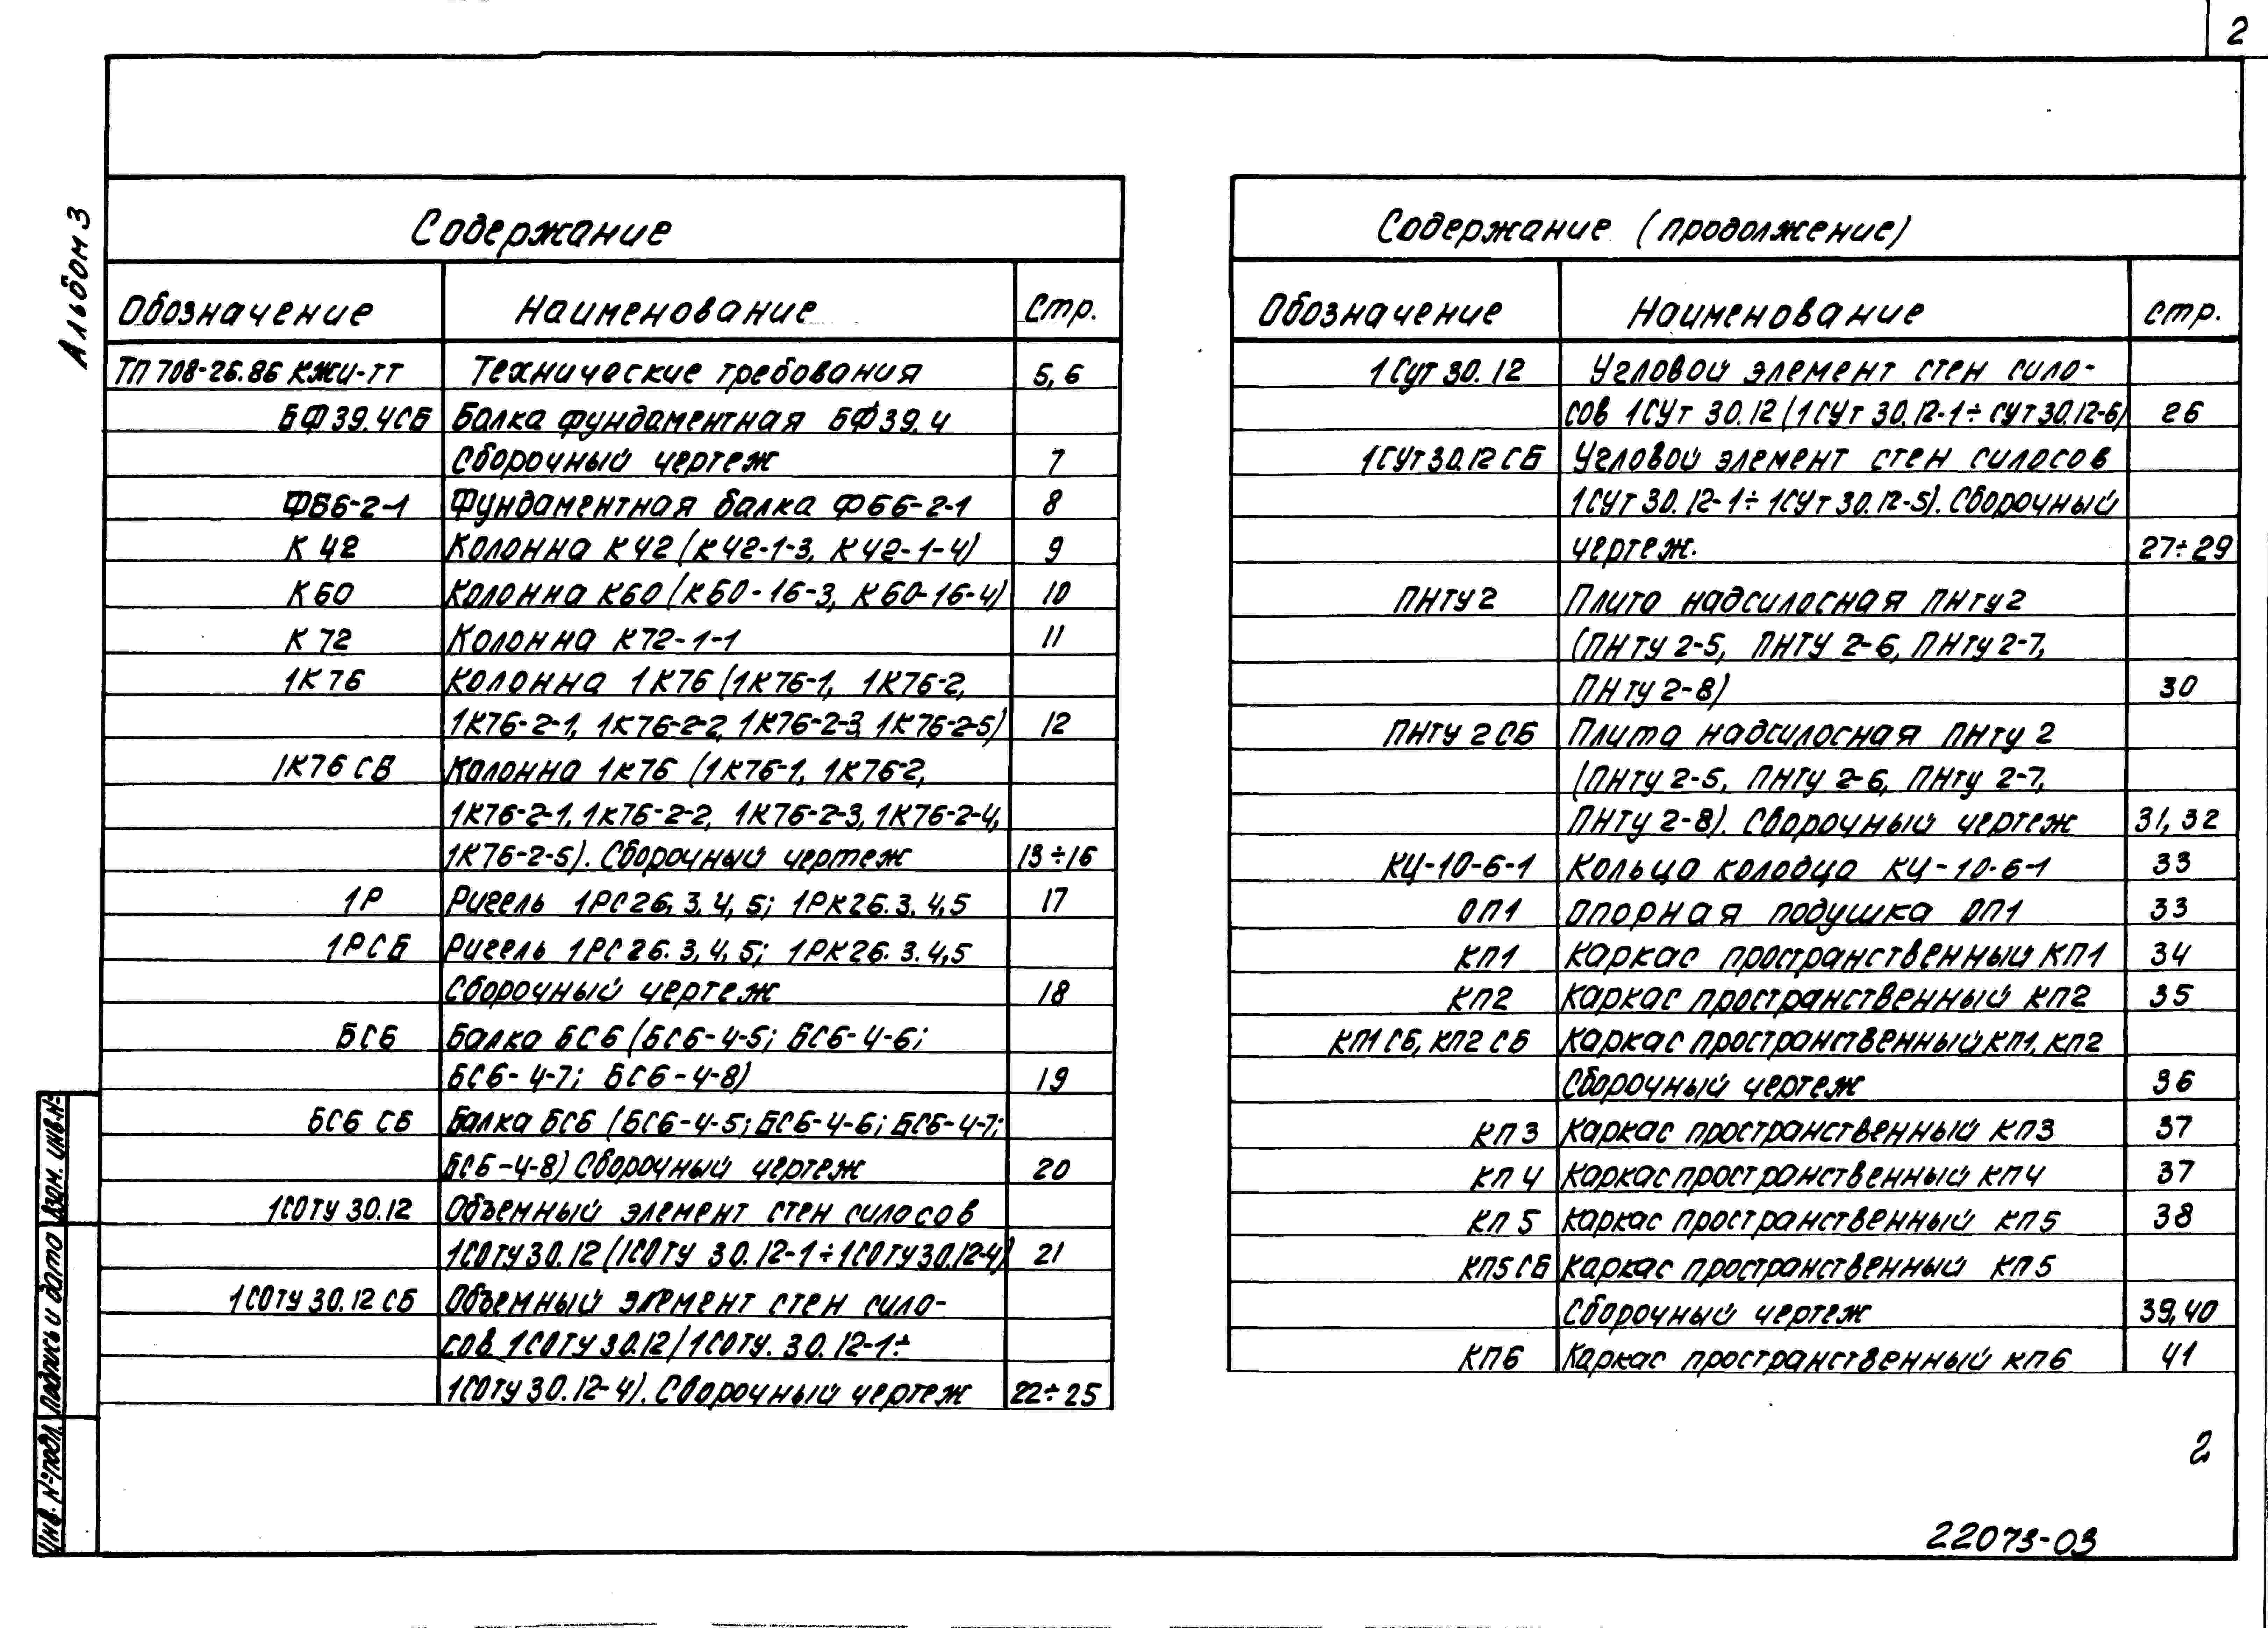 2
Альбом 3
Содержание
Обозначение Наименование Стр.
ТП 708-26.86 КЖИ-ТТ Технические требования 5,6
БФ39.4СБ Балка фундаментная БФ39.4
Сборочный чертеж 7
ФБ6-2-1 Фундаментная балка ФБ6-2-1 8
К 42 Колонна К42 (К42-1-3, К42-1-4) 9
К60 Колонна К60 (К60-16-3, К60-16-4) 10
К 72 Колонна К72-1-1 11
1К76 Колонна 1К76 (1К76-1, 1К76-2,
1К76-2-1, 1К76-2-2, 1К76-2-3, 1К76-2-5) 12
1К76 СБ Колонна 1К76 (1К76-1, 1К76-2,
1К76-2-1, 1К76-2-2, 1К76-2-3, 1К76-2-4,
1К76-2-5). Сборочный чертеж 13÷16
1Р Ригель 1РС26, 3, 4, 5; 1РК26.3.4,5 17
1РСБ Ригель 1РС26. 3, 4, 5; 1РК26. 3. 4,5
Сборочный чертеж 18
БС6 Балка БС6 (БС6-4-5; БС6-4-6;
БС6-4-7; БС6-4-8) 19
БС6 СБ Балка БС6 (БС6-4-5; БС6-4-6; БС6-4-7;
БС6-4-8) Сборочный чертеж 20
1СОТУ 30.12 Объемный элемент стен силосов
1СОТУ30.12 (1СОТУ 30.12-1÷1СОТУ30.12-4) 21
1СОТУ 30.12 СБ Объемный элемент стен сило-
сов 1СОТУ30.12 (1СОТУ. 30.12-1÷
1СОТУ30.12-4). Сборочный чертеж 22÷25
Содержание (продолжение)
Обозначение Наименование стр.
1СУТ 30.12 Угловой элемент стен сило-
сов 1СУТ 30.12 (1СУТ 30.12-1÷СУТ30.12-6) 26
1СУТ30.12 СБ Угловой элемент стен силосов
1СУТ 30.12-1÷1СУТ 30.12-5). Сборочный
чертеж. 27÷29
ПНТУ2 Плита надсилосная ПНТУ2
(ПНТУ 2-5, ПНТУ 2-6, ПНТУ 2-7,
ПНТУ 2-8) 30
ПНТУ 2 СБ Плита надсилосная ПНТУ 2
(ПНТУ 2-5, ПНТУ 2-6, ПНТУ 2-7,
ПНТУ 2-8). Сборочный чертеж 31, 32
КЦ-10-6-1 Кольцо колодца КЦ-10-6-1 33
ОП1 Опорная подушка ОП1 33
КП1 Каркас пространственный КП1 34
КП2 Каркас пространственный КП2 35
КП1 СБ, КП2 СБ Каркас пространственный КП1, КП2
Сборочный чертеж 36
КП 3 Каркас пространственный КП3 37
КП 4 Каркас пространственный КП4 37
КП 5 Каркас пространственный КП5 38
КП5 СБ Каркас пространственный КП5
Сборочный чертеж 39,40
КП6 Каркас пространственный КП6 41
Инв. № подл. Подпись и дата Взам. инв. №
2
22073-03